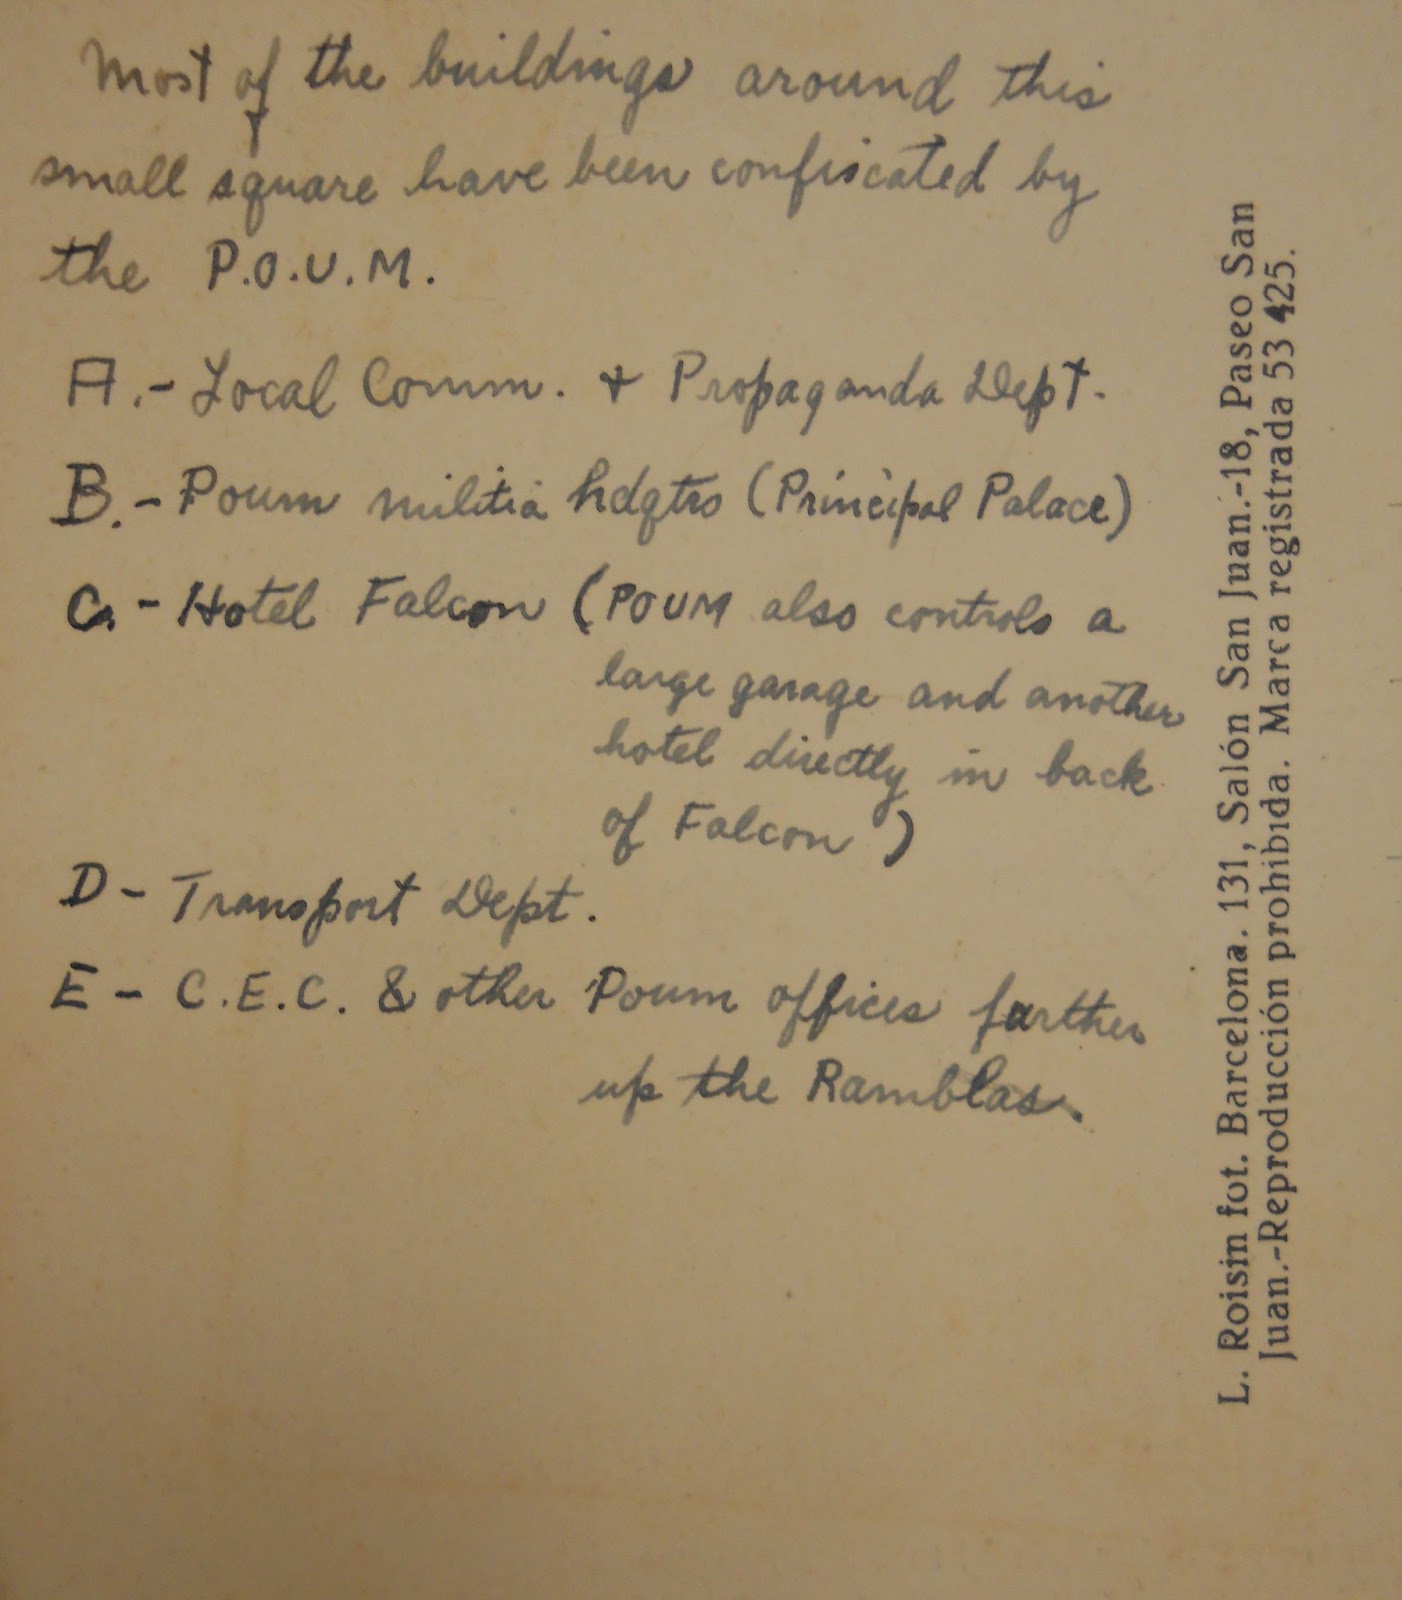 Most of the buildings around this
small square have been confiscated by
the P.O.U.M.
A.- Local Comm. + Propaganda Dept.
B.- Poum militia hdqtrs (Principal Palace)
C.- Hotel Falcon (POUM also controls a
large garage and another
hotel directly in back
of Falcon)
D- Transport Dept.
E- C.E.C. & other Poum offices further
up the Ramblas.
L. Roisin fot. Barcelona. 131, Salón San Juan.-18, Paseo San
Juan.-Reproducción prohibida. Marca registrada 53 425.